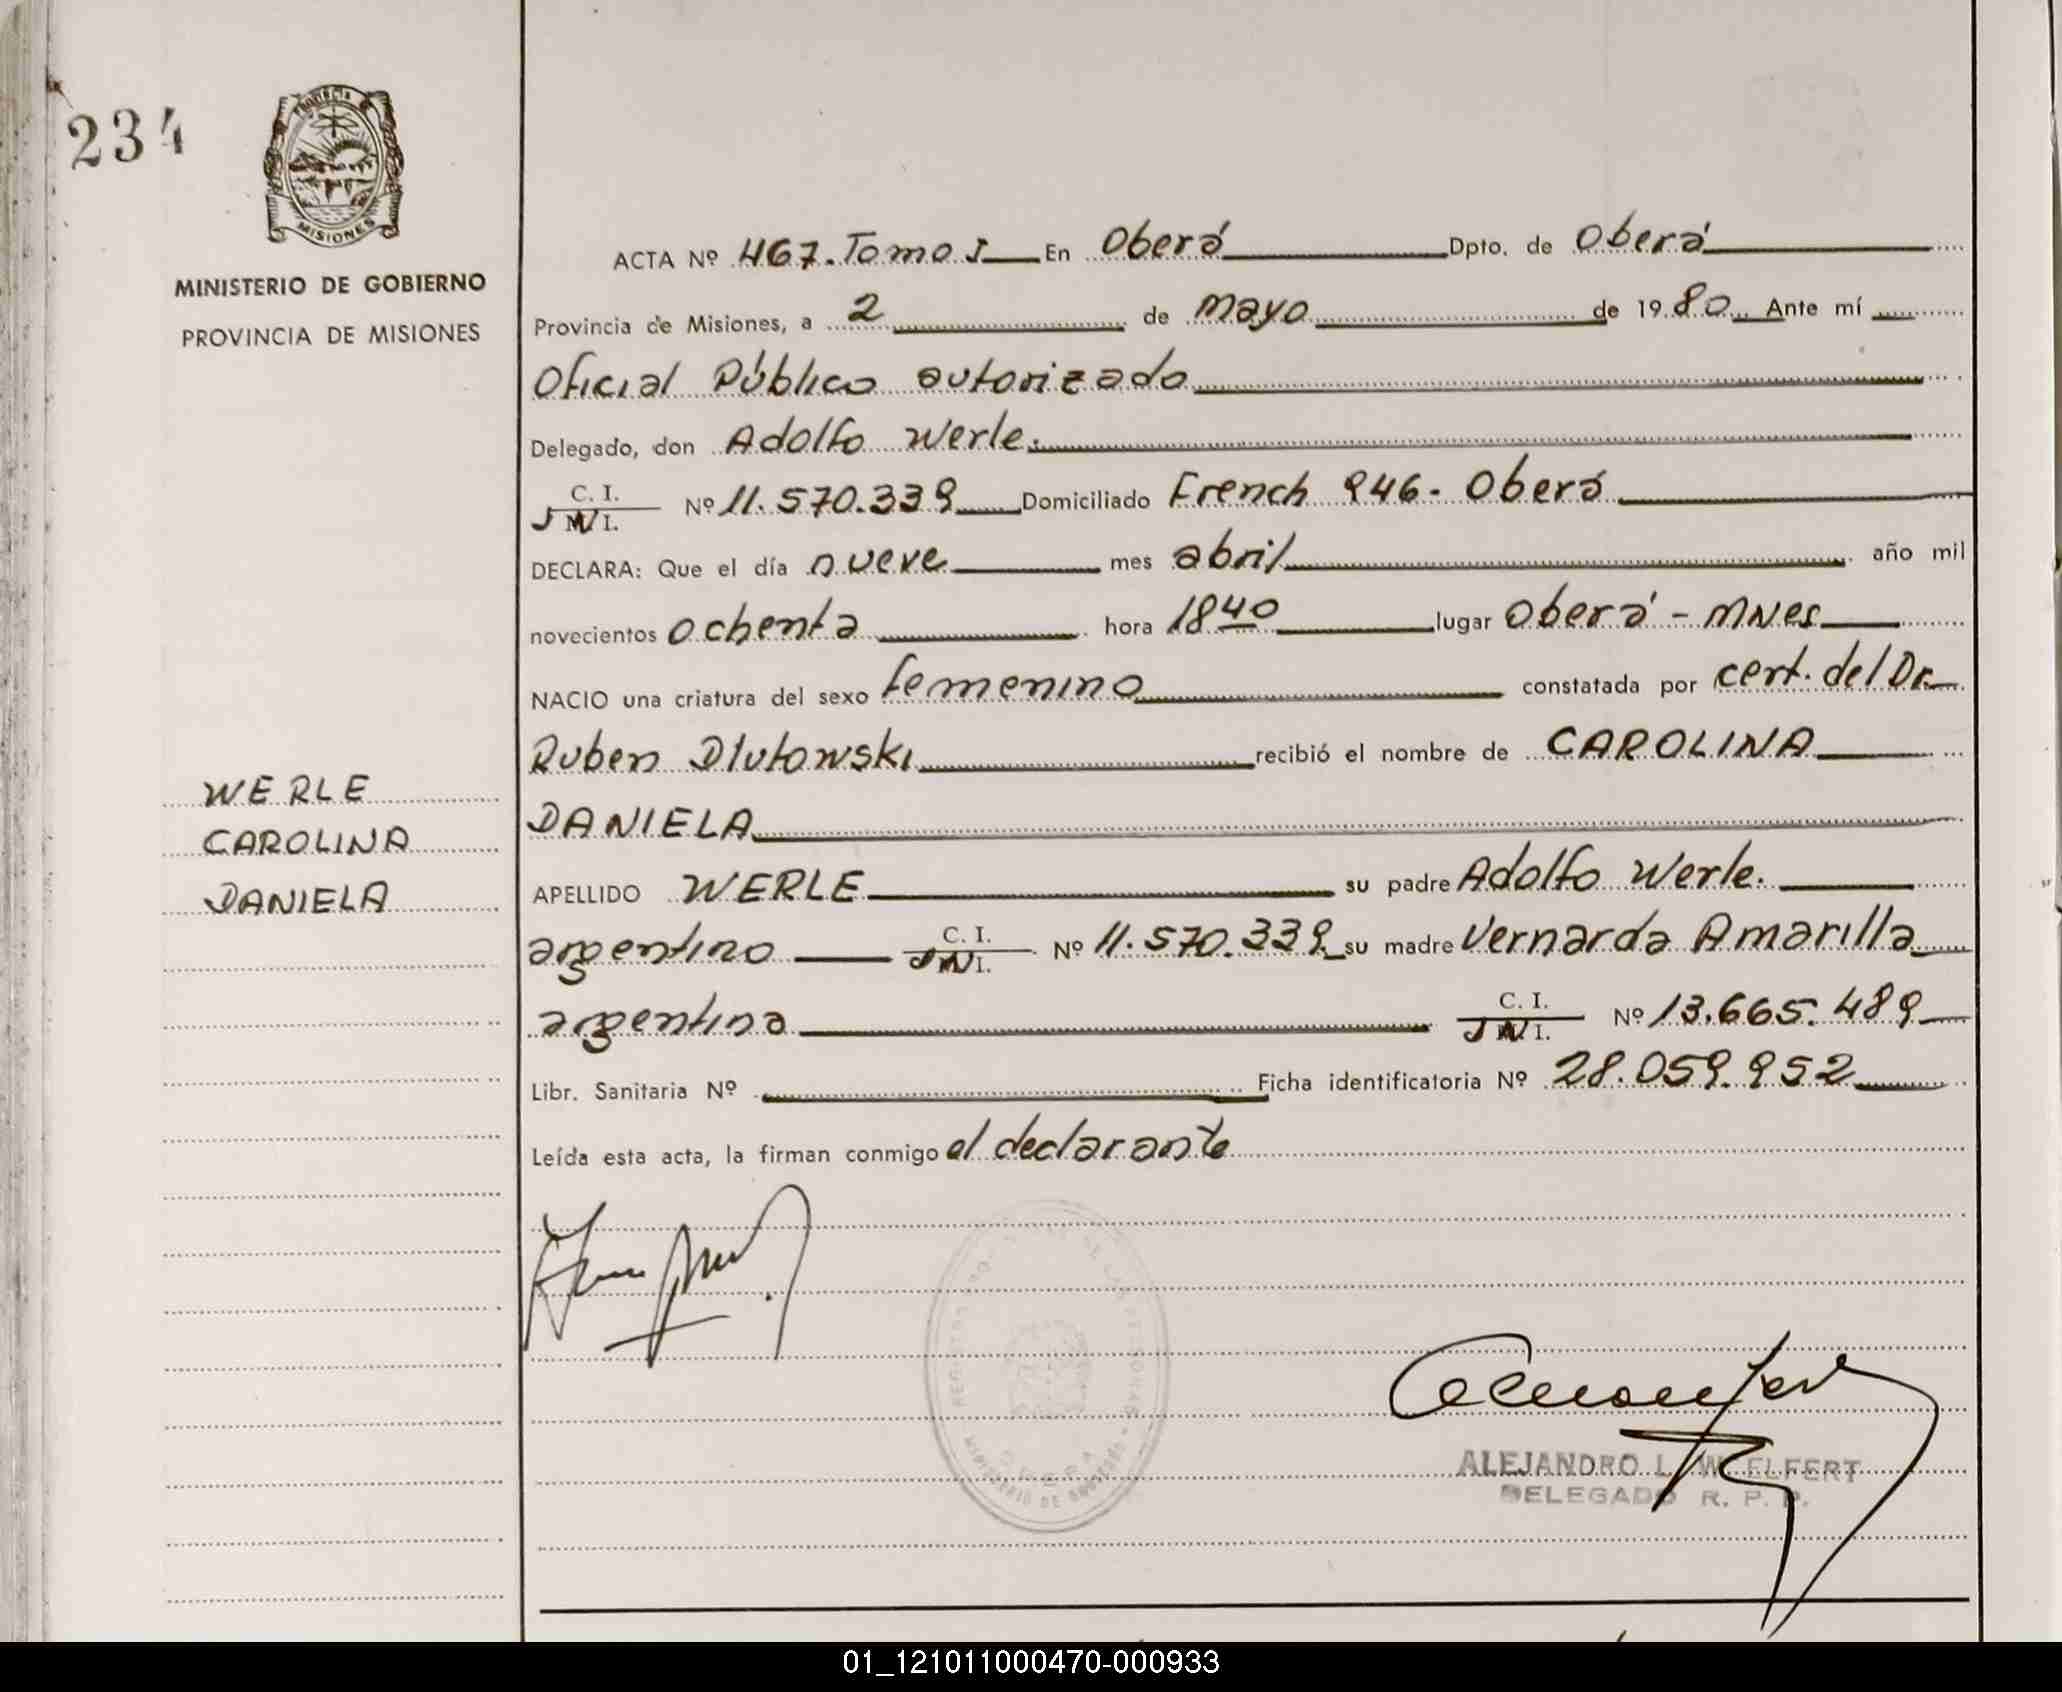 234
PROVINCIA DE
MISIONES
MINISTERIO DE GOBIERNO
PROVINCIA DE MISIONES
WERLE
CAROLINA
DANIELA
ACTA Nº 467. Tomo I En Oberá Dpto. de Oberá
Provincia de Misiones, a 2 de Mayo de 1980 Ante mí
Oficial Público autorizado
Delegado, don Adolfo Werle.
C. I.
D N I. Nº 11.570.339 Domiciliado French 946 - Oberá
DECLARA: Que el día nueve mes abril año mil
novecientos ochenta hora 18 40 lugar Oberá - MNes
NACIO una criatura del sexo femenino constatada por cert. del Dr.
Ruben Dlutowski recibió el nombre de CAROLINA
DANIELA
APELLIDO WERLE su padre Adolfo Werle.
argentino C. I.
D N I. Nº 11.570.339 su madre Vernarda Amarilla
argentina C. I.
D N I. Nº 13.665.489
Libr. Sanitaria Nº Ficha identificatoria Nº 28.059.952
Leída esta acta, la firman conmigo el declarante
ALEJANDRO L. W. ELFERT
DELEGADO R. P. P.
01_121011000470-000933